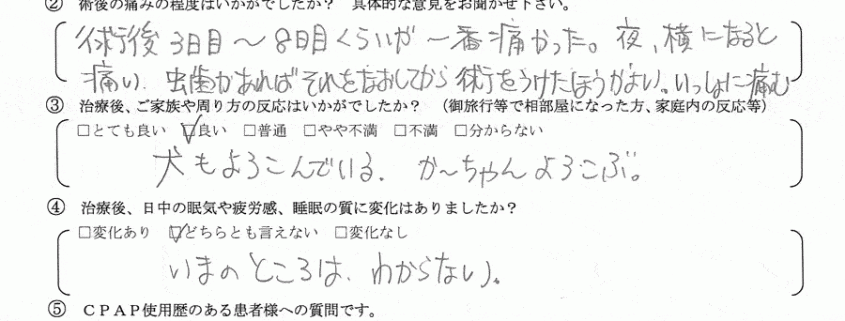 ② 術後の痛みの程度はいかがでしたか？　具体的な意見をお聞かせ下さい。
術後3日目〜8日目くらいが一番痛かった。夜、横になると
痛い、虫歯があればそれをなおしてから術をうけたほうがよい。いっしょに痛む
③ 治療後、ご家族や周り方の反応はいかがでしたか？　（御旅行等で相部屋になった方、家庭内の反応等）
□とても良い　☑良い　□普通　□やや不満　□不満　□分からない
犬もよろこんでいる。か〜ちゃんよろこぶ。
④ 治療後、日中の眠気や疲労感、睡眠の質に変化はありましたか？
□変化あり　☑どちらとも言えない　□変化なし
いまのところは、わからない。
⑤ ＣＰＡＰ使用歴のある患者様への質問です。